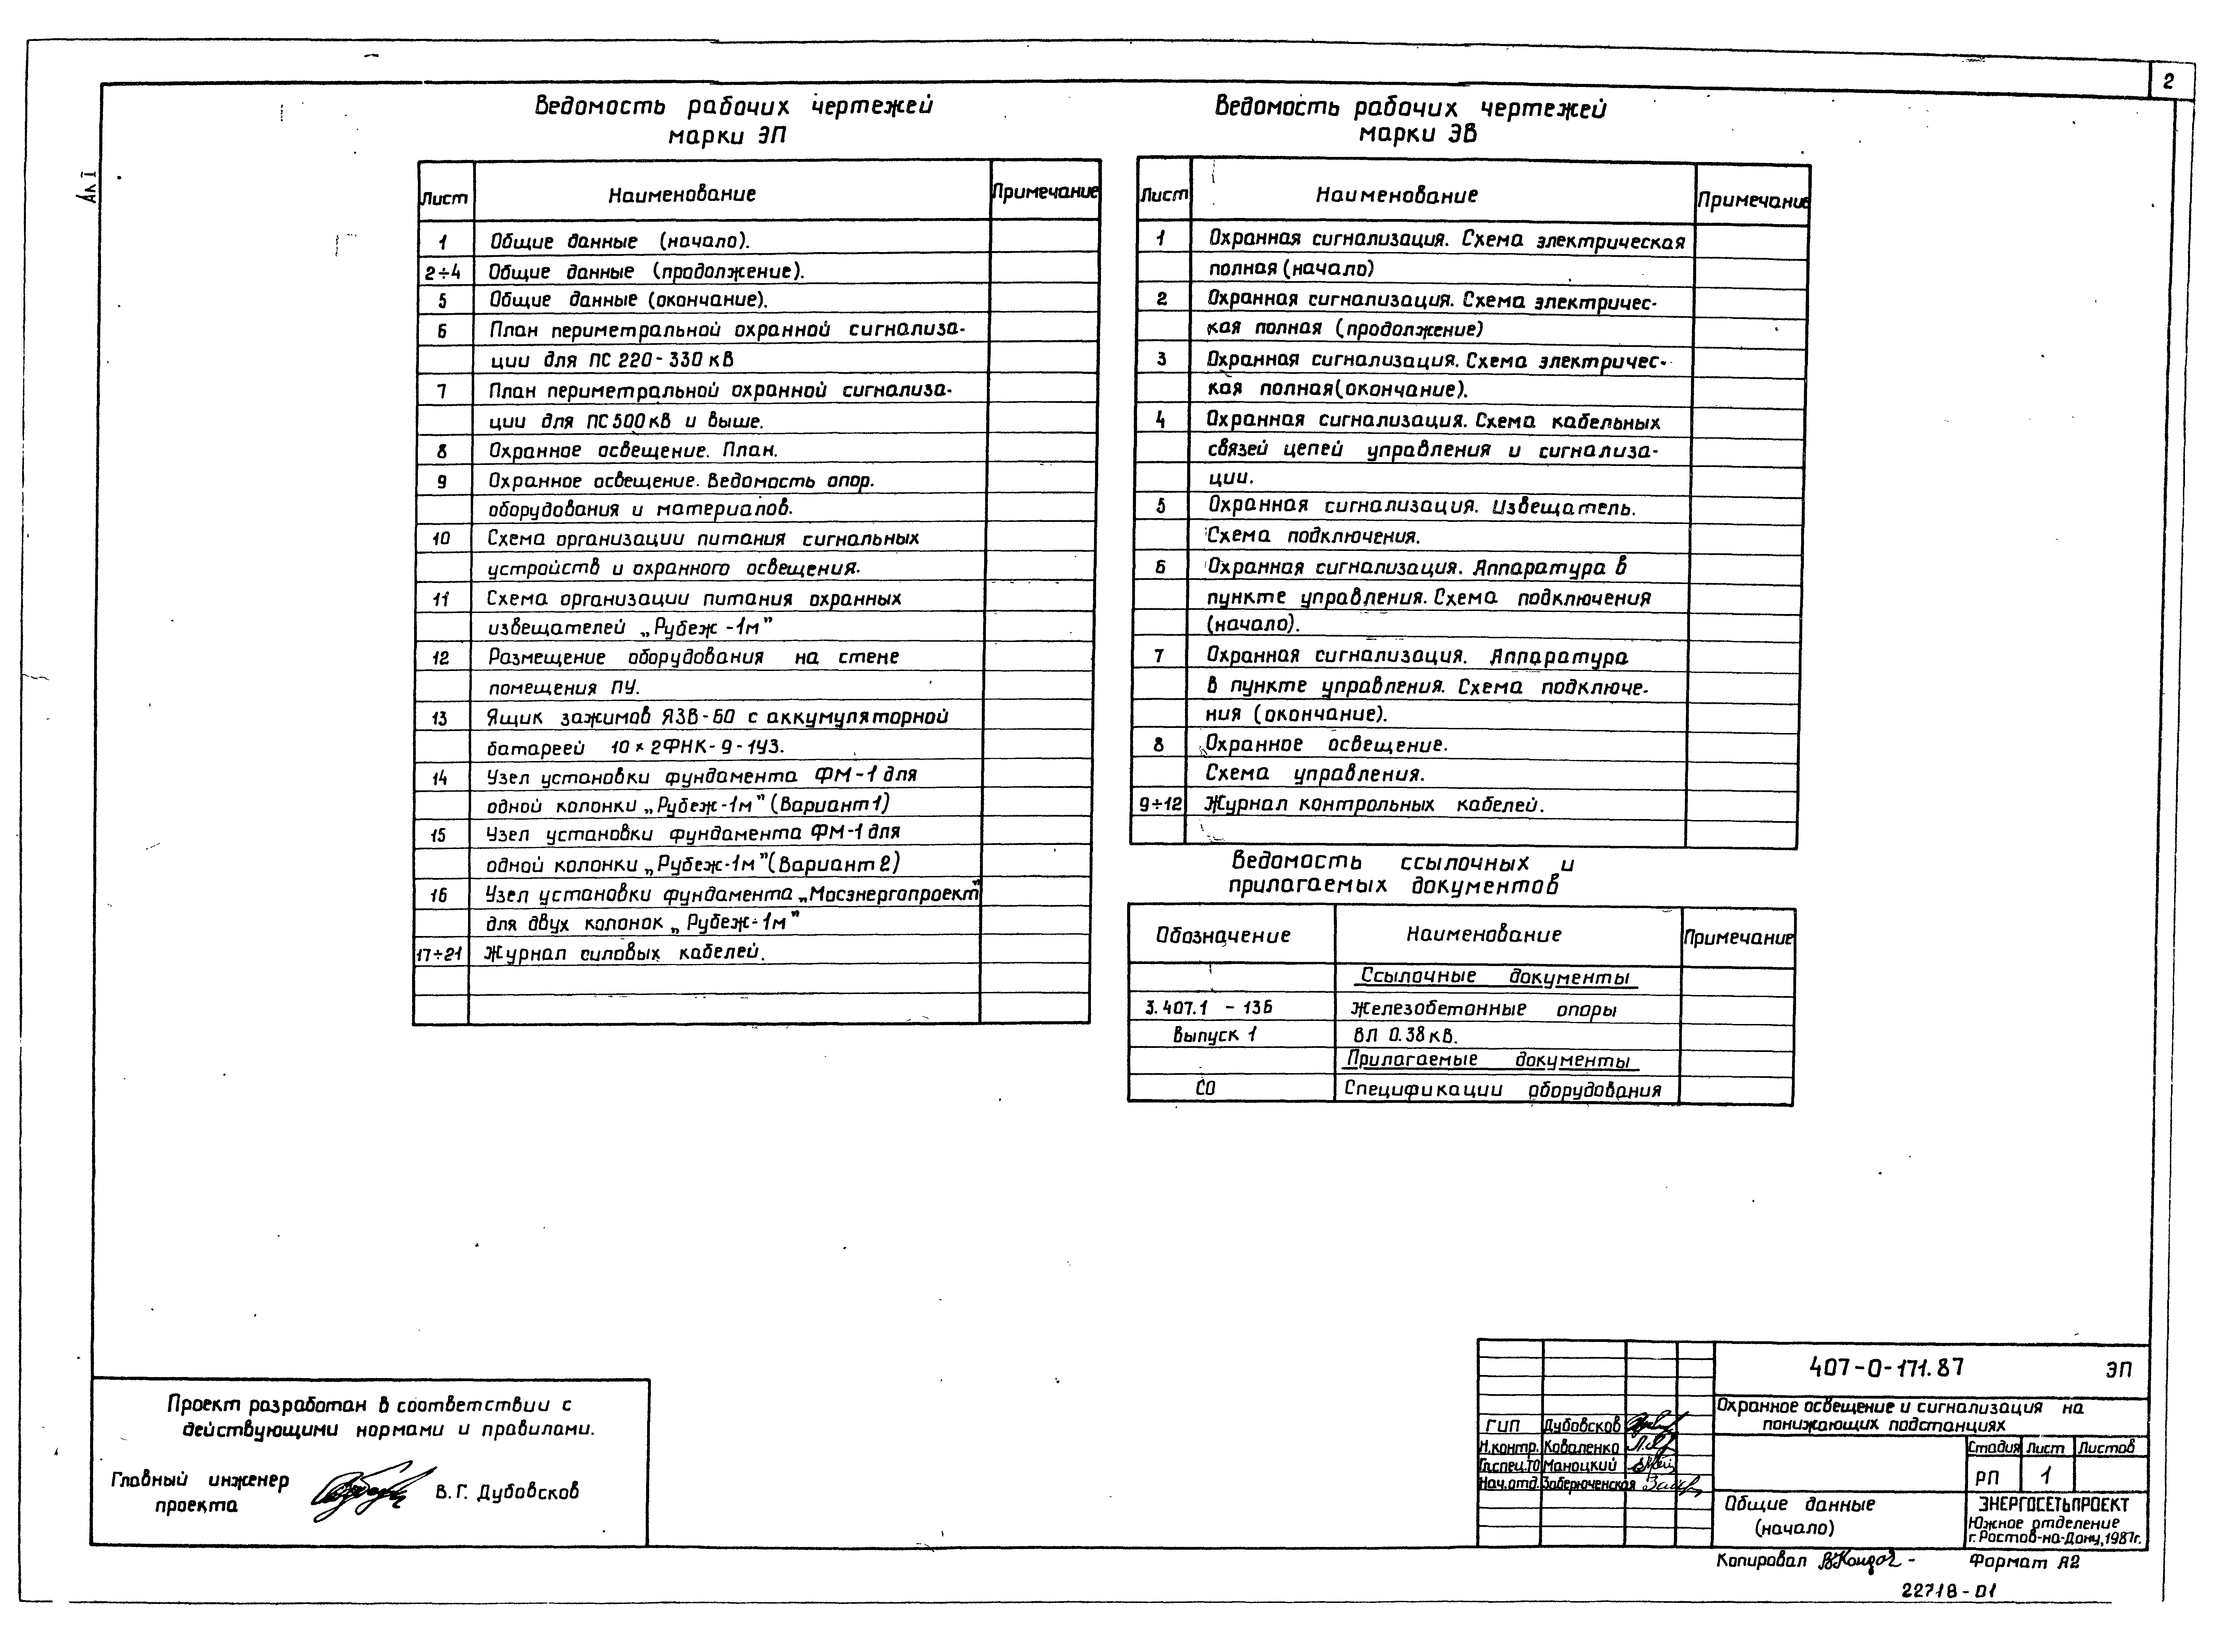 2
Ак I
Ведомость рабочих чертежей
марки ЭП
Лист Наименование Примечание
1 Общие данные (начало).
2÷4 Общие данные (продолжение).
5 Общие данные (окончание).
6 План периметральной охранной сигнализа-
ции для ПС 220-330 кВ
7 План периметральной охранной сигнализа-
ции для ПС 500кВ и выше.
8 Охранное освещение. План.
9 Охранное освещение. Ведомость опор.
оборудования и материалов.
10 Схема организации питания сигнальных
устройств и охранного освещения.
11 Схема организации питания охранных
извещателей „Рубеж-1м"
12 Размещение оборудования на стене
помещения ПУ.
13 Ящик зажимов ЯЗВ-60 с аккумуляторной
батареей 10×2ФНК-9-1У3.
14 Узел установки фундамента ФМ-1 для
одной колонки „Рубеж-1м" (Вариант 1)
15 Узел установки фундамента ФМ-1 для
одной колонки „Рубеж-1м" (Вариант 2)
16 Узел установки фундамента „Мосэнергопроект"
для двух колонок „Рубеж-1м"
17÷21 Журнал силовых кабелей.
Ведомость рабочих чертежей
марки ЭВ
Лист Наименование Примечание
1 Охранная сигнализация. Схема электрическая
полная (начало)
2 Охранная сигнализация. Схема электричес-
кая полная (продолжение)
3 Охранная сигнализация. Схема электричес-
кая полная (окончание).
4 Охранная сигнализация. Схема кабельных
связей цепей управления и сигнализа-
ции.
5 Охранная сигнализация. Извещатель.
Схема подключения.
6 Охранная сигнализация. Аппаратура в
пункте управления. Схема подключения
(начало).
7 Охранная сигнализация. Аппаратура
в пункте управления. Схема подключе-
ния (окончание).
8 Охранное освещение.
Схема управления.
9÷12 Журнал контрольных кабелей.
Ведомость ссылочных и
прилагаемых документов
Обозначение Наименование Примечание
Ссылочные документы
3.407.1 - 136 Железобетонные опоры
Выпуск 1 ВЛ 0.38 кВ.
Прилагаемые документы
СО Спецификации оборудования
Проект разработан в соответствии с
действующими нормами и правилами.
Главный инженер
проекта В.Г. Дубовсков
407-0-171.87 ЭП
Охранное освещение и сигнализация на
понижающих подстанциях
ГИП Дубовсков
Н.контр. Коваленко
Гл.спец.ТО Маноцкий
Нач.отд. Заберюченская
Стадия Лист Листов
РП 1
Общие данные
(начало)
ЭНЕРГОСЕТЬПРОЕКТ
Южное отделение
г.Ростов-на-Дону,1987г.
Копировал Формат А2
22718-01